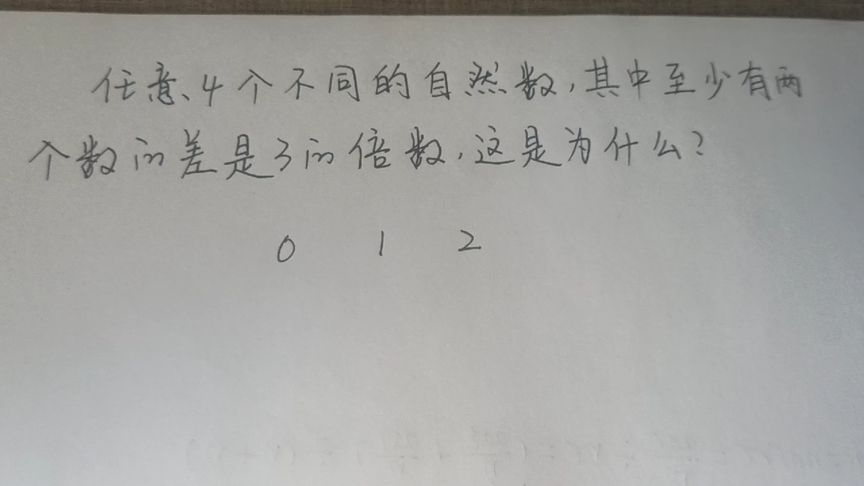 任意4个不同的自然数,其中至少有两
个数的差是3的倍数,这是为什么?
0 1 2